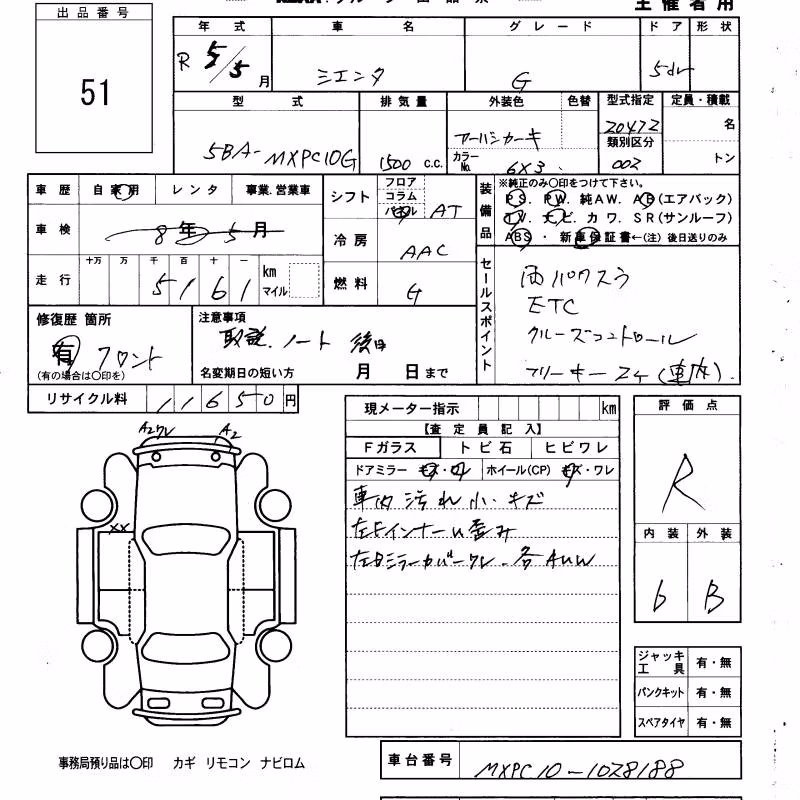 主催者用
出品番号
51
年式
車名
グレード
ドア
形状
R 5/5月
シエンタ
G
5dr
型式
排気量
外装色
色替
型式指定
定員・積載
5BA-MXPC10G
1500 c.c.
アーバンカーキ
20472
名
類別区分
カラーNo.
6X3
002
トン
車歴
自家用
レンタ
事業.営業車
シフト
フロア
コラム
パネル
AT
装備品
※純正のみ〇印をつけて下さい。
PS. PW. 純AW. AB(エアバック)
TV. ナビ. カワ. SR(サンルーフ)
ABS・新車保証書←(注) 後日送りのみ
車検
8年5月
冷房
AAC
走行
十万 万 千 百 十 一
5161
km
マイル
燃料
G
セールスポイント
両パワスラ
ETC
クルーズコントロール
修復歴 箇所
有 フロント
(有の場合は〇印を)
注意事項
取説.ノート 後日
名変期日の短い方 月 日まで
リサイクル料
11650円
現メーター指示
km
評価点
R
【査定員記入】
Fガラス
トビ石
ヒビワレ
ドアミラー キズ・ワレ
ホイール(CP) キズ・ワレ
車内汚れ小.キズ
左Fインナー歪み
A2ワレ
A2
XX
内装
外装
6
B
ジャッキ工具
有・無
パンクキット
有・無
スペアタイヤ
有・無
事務局預り品は〇印 カギ リモコン ナビロム
車台番号
MXPC10-1028188